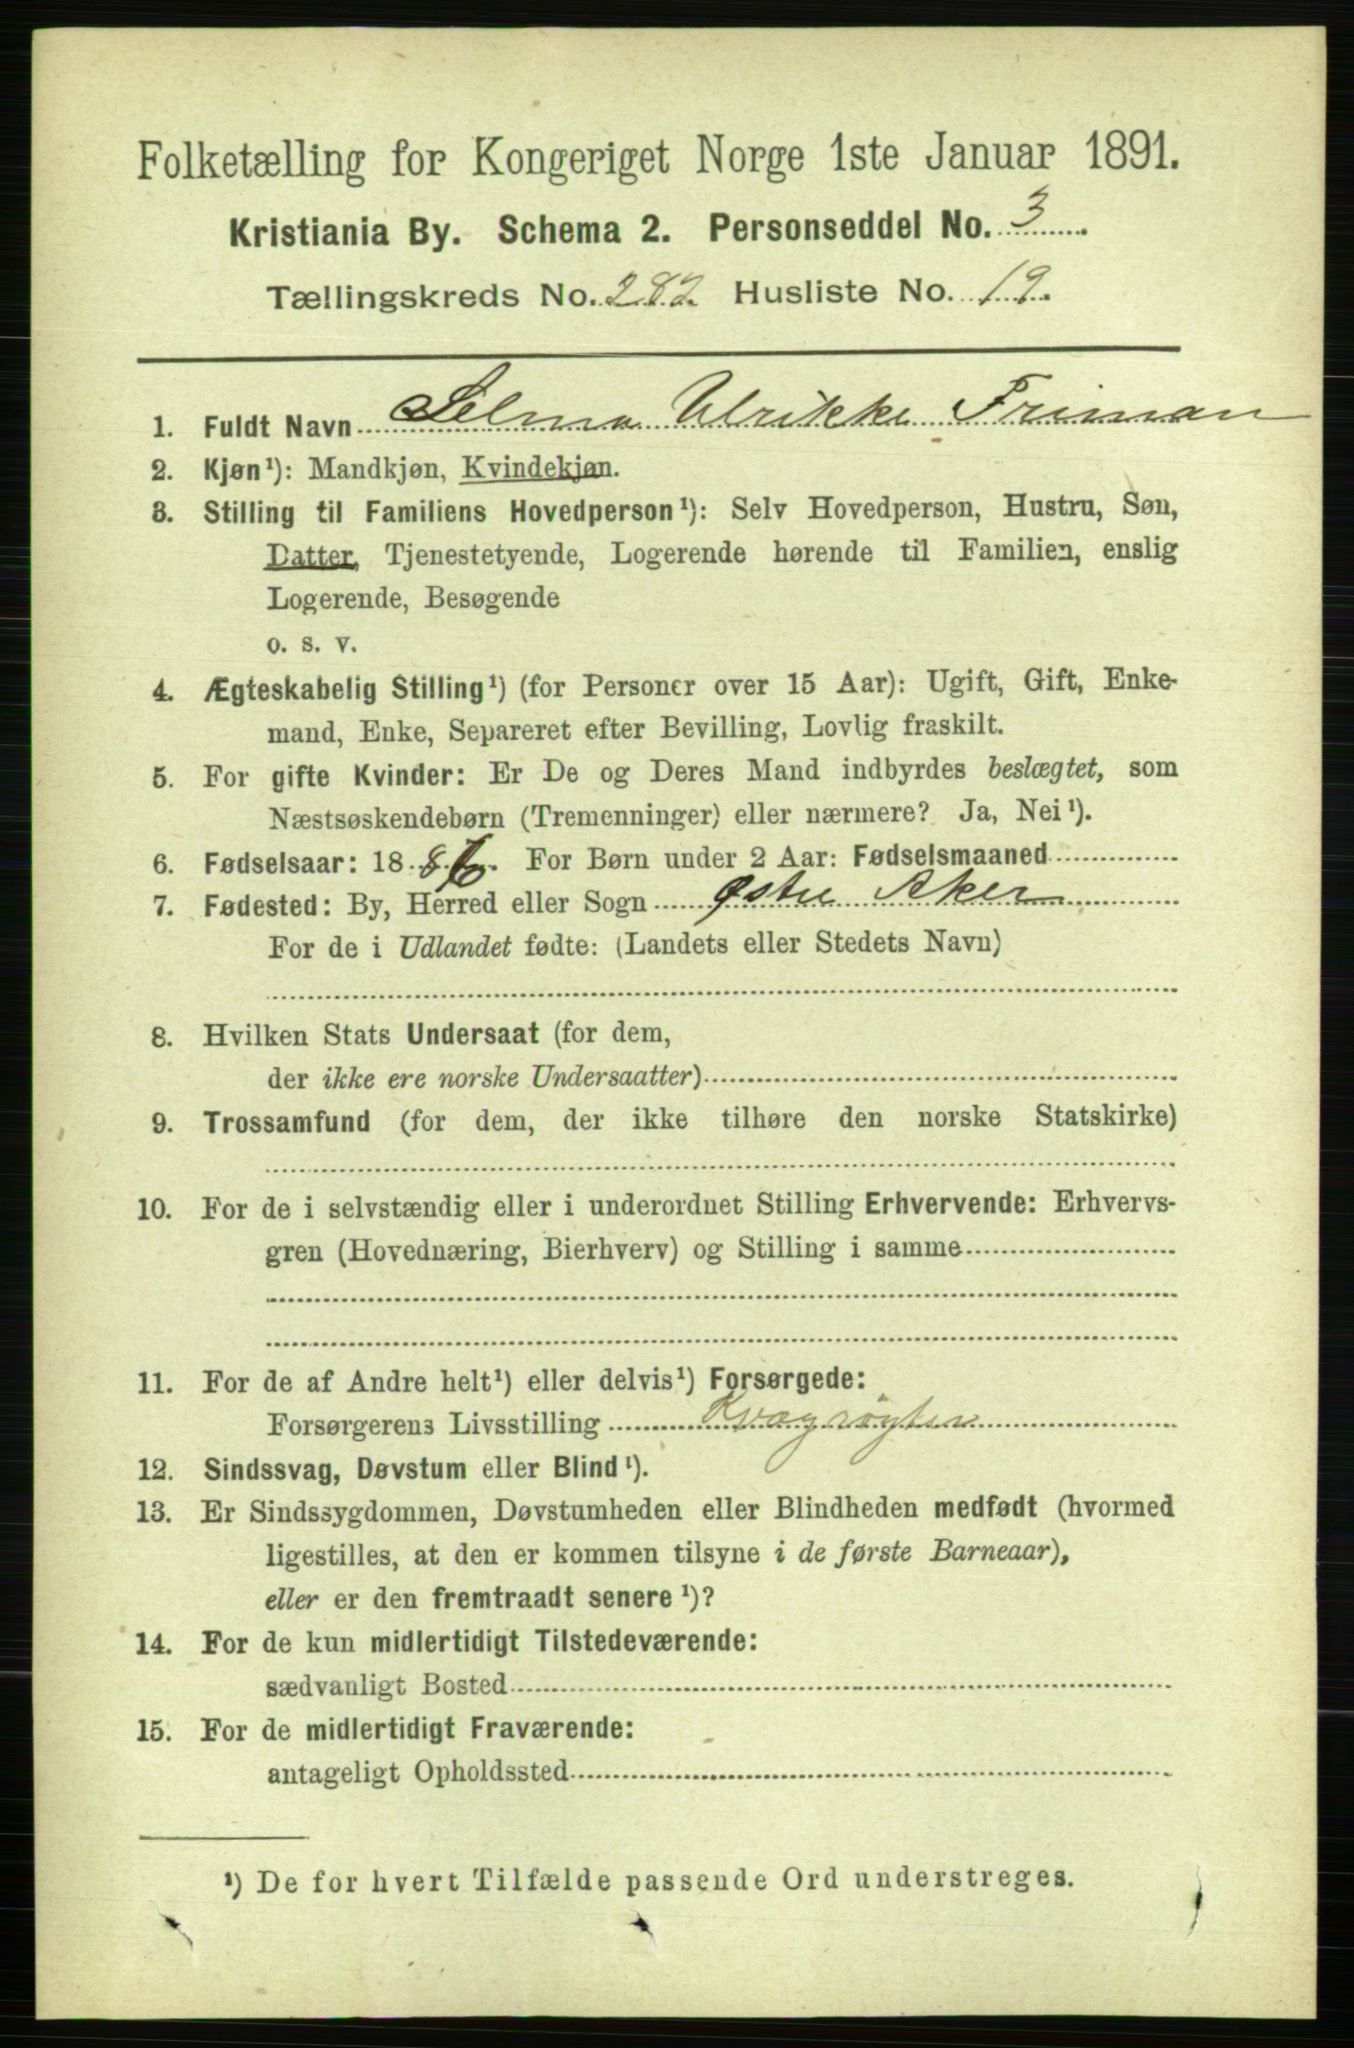 Folketælling for Kongeriget Norge 1ste Januar 1891.
Kristiania By. Schema 2. Personseddel No. 3
Tællingskreds No. 282 Husliste No. 19.
1. Fuldt Navn Selma Ulrikke Friman
2. Kjøn¹): Mandkjøn, Kvindekjøn.
3. Stilling til Familiens Hovedperson¹): Selv Hovedperson, Hustru, Søn,
Datter, Tjenestetyende, Logerende hørende til Familien, enslig
Logerende, Besøgende
o. s. v.
4. Ægteskabelig Stilling¹) (for Personer over 15 Aar): Ugift, Gift, Enke-
mand, Enke, Separeret efter Bevilling, Lovlig fraskilt.
5. For gifte Kvinder: Er De og Deres Mand indbyrdes beslægtet, som
Næstsøskendebørn (Tremenninger) eller nærmere? Ja, Nei¹).
6. Fødselsaar: 1886. For Børn under 2 Aar: Fødselsmaaned
7. Fødested: By, Herred eller Sogn Østre Aker
For de i Udlandet fødte: (Landets eller Stedets Navn)
8. Hvilken Stats Undersaat (for dem,
der ikke ere norske Undersaatter)
9. Trossamfund (for dem, der ikke tilhøre den norske Statskirke)
10. For de i selvstændig eller i underordnet Stilling Erhvervende: Erhvervs-
gren (Hovednæring, Bierhverv) og Stilling i samme
11. For de af Andre helt¹) eller delvis¹) Forsørgede:
Forsørgerens Livsstilling Kvægrøgter
12. Sindssvag, Døvstum eller Blind¹).
13. Er Sindssygdommen, Døvstumheden eller Blindheden medfødt (hvormed
ligestilles, at den er kommen tilsyne i de første Barneaar),
eller er den fremtraadt senere¹)?
14. For de kun midlertidigt Tilstedeværende:
sædvanligt Bosted
15. For de midlertidigt Fraværende:
antageligt Opholdssted
¹) De for hvert Tilfælde passende Ord understreges.